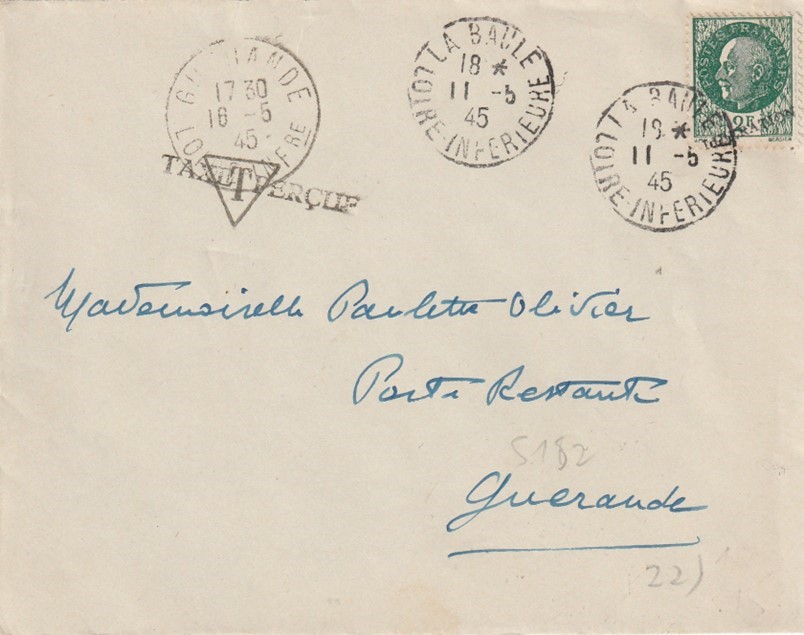 GUERANDE
17 30
16 -5
45
LOIRE INFRE
TAXE PERÇUE
T
LA BAULE
18 *
11 -5
45
LOIRE-INFERIEURE
LA BAULE
18 *
11 -5
45
LOIRE-INFERIEURE
POSTES FRANÇAISES
2F
LIBERATION
Mademoiselle Paulette Olivier
Poste Restante
S182
Guerande
22)